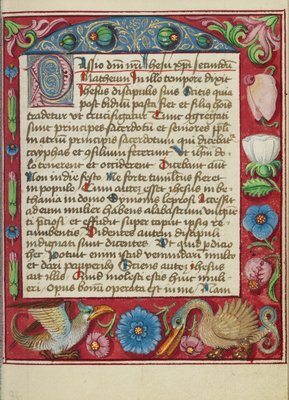 Passio dm̄ nr̄i Jhesu xp̄i secundū
Matheum In illo tempore dixit
Jhesus discipulis suis Scitis quia
post biduū pasca fiet et filiꝰ hoīs
tradetur ut crucifigatur Tunc ōgregati
sunt principes sacerdotū et seniores pp̄li
in atriū principis sacerdotum qui dicebat̄
cayphas et ꝯsilium fecerunt Ut ihm̄ do
lo tenerent et occiderent Dicebant aūt
Non in die festo Ne forte tumultus fieret
in populo Cum autē esset ihesus in be
thania in domo symonis leprosi Accessit
ad eum mulier habens alabastrum ungue
ti p̄ciosi et effudit super caput ipsiꝰ re
cumbentis Videntes autem discipuli
indignati sunt dicentes Ut quid p̄ditio
hec Potuit enim istud venundari multo
et dari pauperibꝰ Sciens autē ihesus
ait illis Quid molesti estis huic muli
eri Opus bonū operata est in me Nam